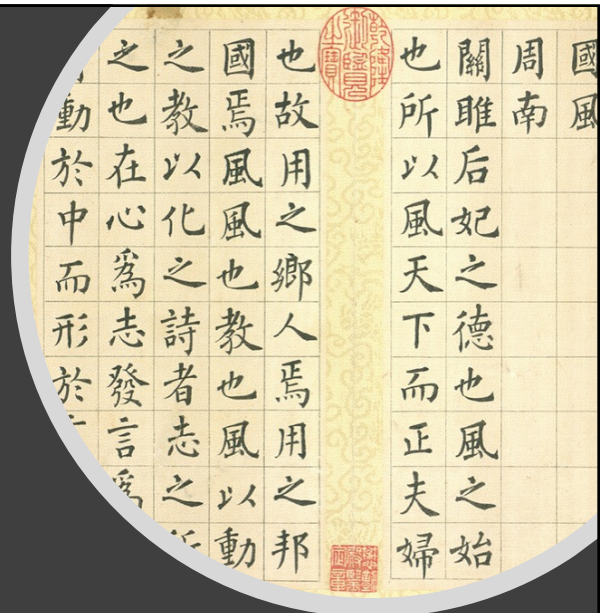 國風
周南
關雎后妃之德也風之始
也所以風天下而正夫婦
乾隆御覽之寶
也故用之鄉人焉用之邦
國焉風風也教也風以動
之教以化之詩者志之所
之也在心爲志發言爲
動於中而形於